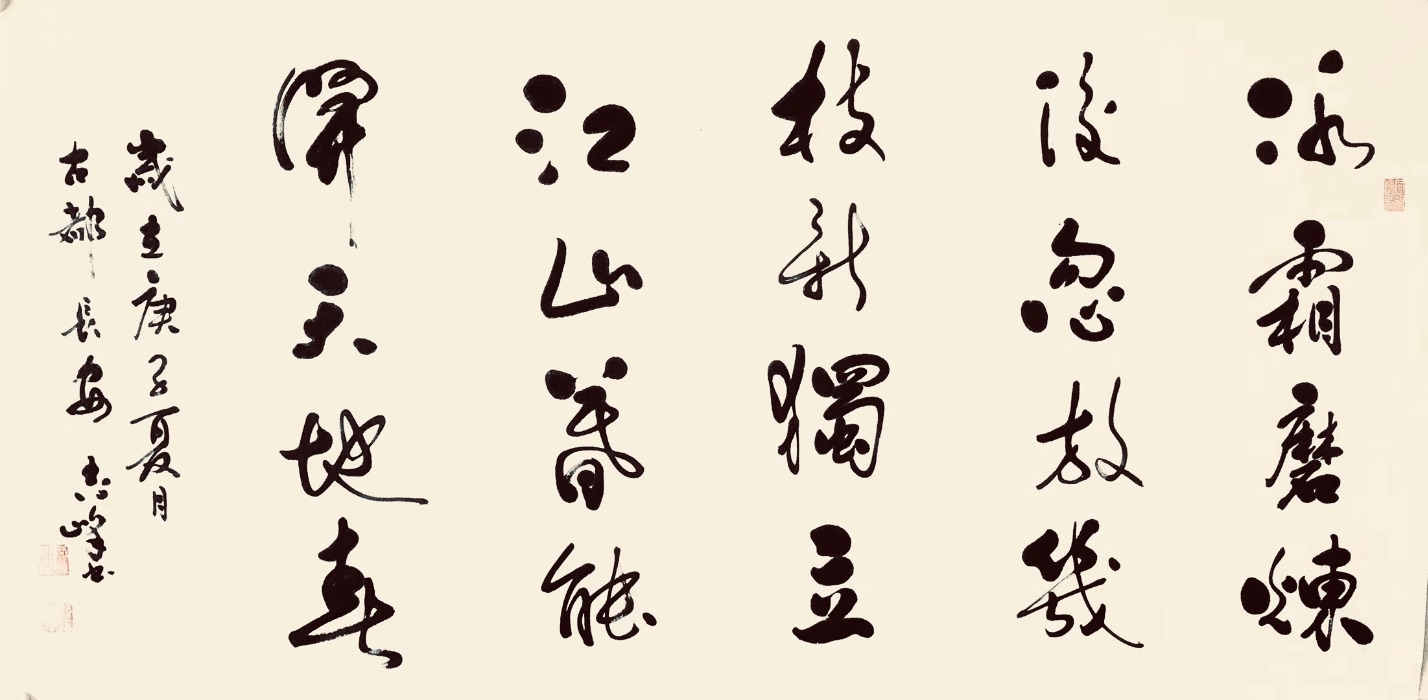 冰霜磨煉
後忽放幾
枝新獨立
江山暮能
開天地春
歲在庚子夏月
古都長安志峰書